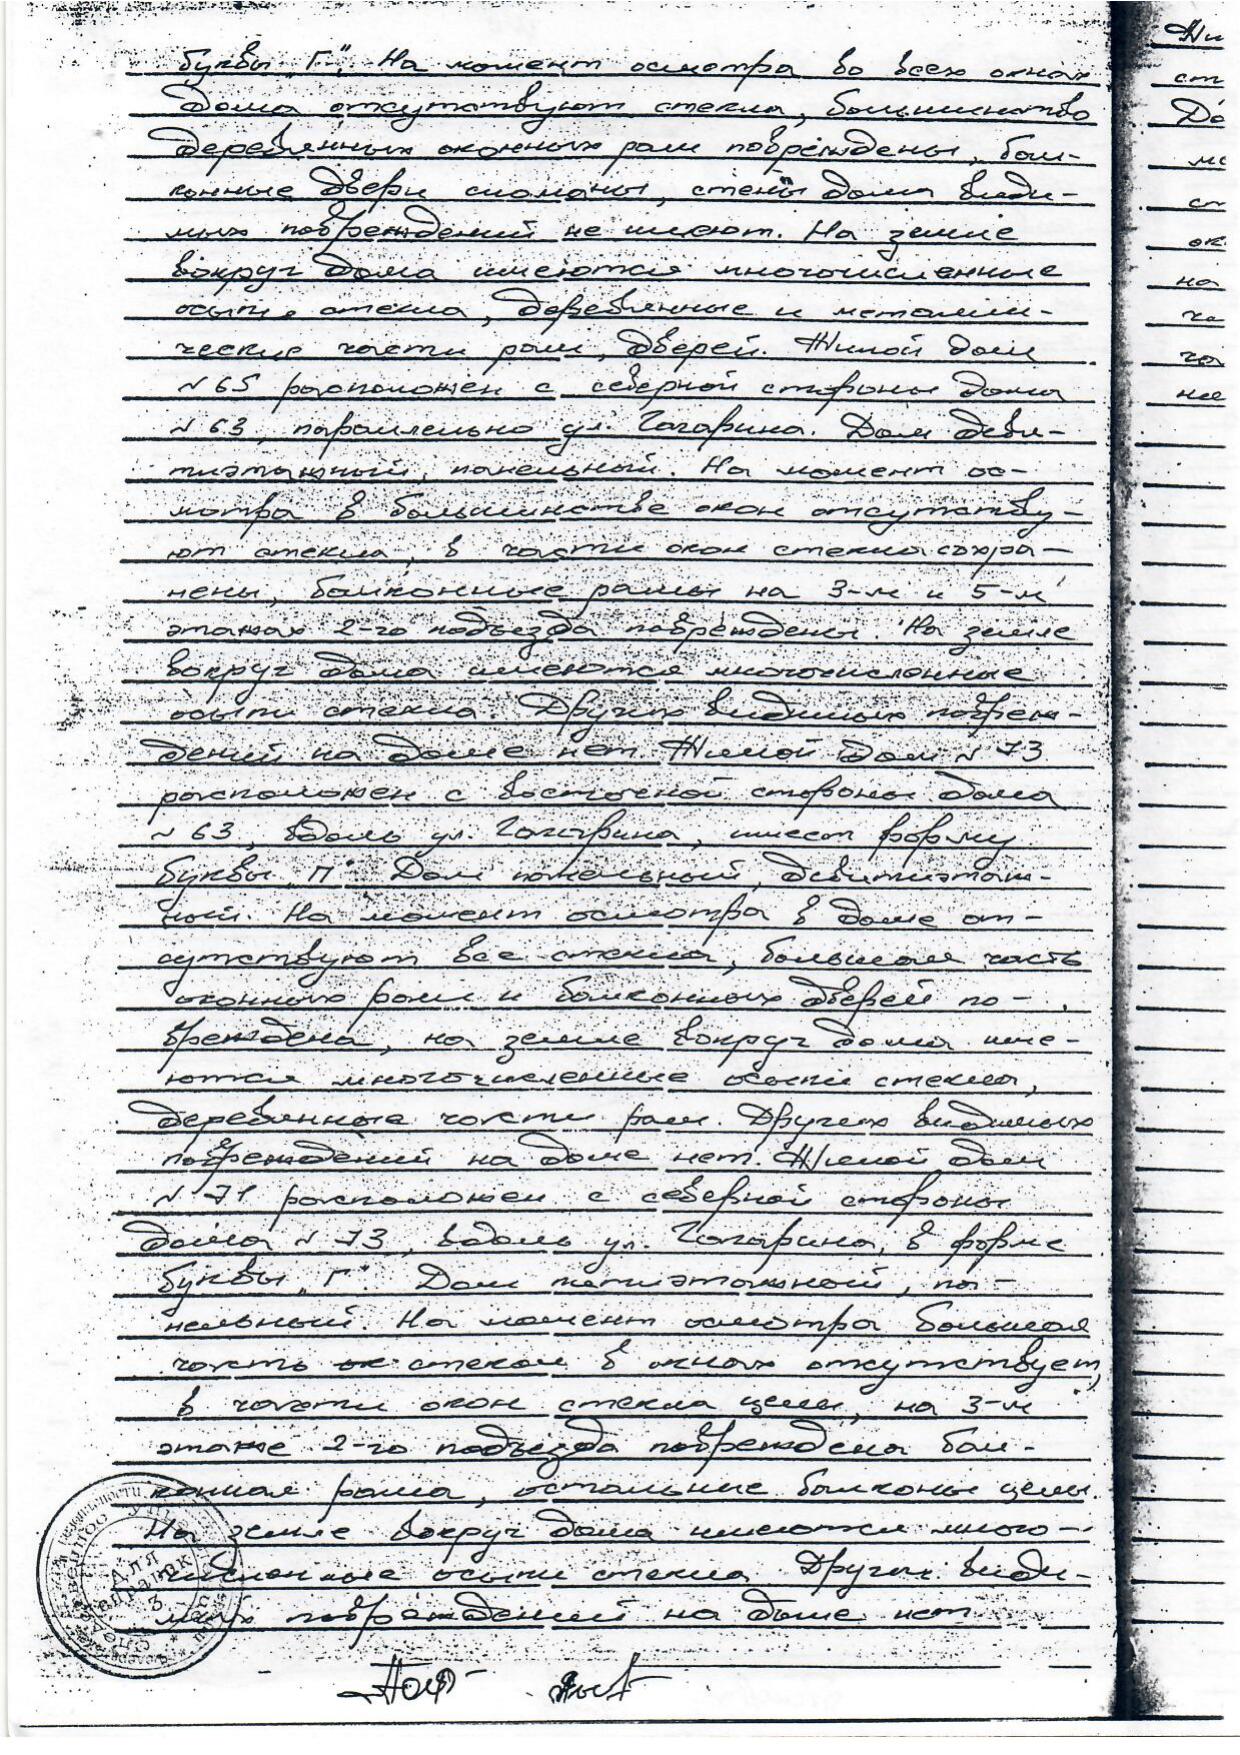 буквы „Г". На момент осмотра во всех окнах
дома отсутствуют стекла, большинство
деревянных оконных рам повреждены, бал-
конные двери сломаны, стены дома види-
мых повреждений не имеют. На земле
вокруг дома имеются многочисленные
осыпи стекла, деревянные и металли-
ческие части рам, дверей. Жилой дом
№ 65 расположен с северной стороны дома
№ 63, параллельно ул. Гагарина. Дом девя-
тиэтажный, панельный. На момент ос-
мотра в большинстве окон отсутству-
ют стекла, в части окон стекла сохра-
нены, балконные рамы на 3-м и 5-м
этажах 2-го подъезда повреждены. На земле
вокруг дома имеются многочисленные
осыпи стекла. Других видимых повреж-
дений на доме нет. Жилой дом № 73
расположен с восточной стороны дома
№ 63, вдоль ул. Гагарина, имеет форму
буквы „П". Дом панельный, девятиэтаж-
ный. На момент осмотра в доме от-
сутствуют все стекла, большая часть
оконных рам и балконных дверей по-
вреждена, на земле вокруг дома име-
ются многочисленные осыпи стекла,
деревянные части рам. Других видимых
повреждений на доме нет. Жилой дом
№ 71 расположен с северной стороны
дома № 73, вдоль ул. Гагарина, в форме
буквы „Г". Дом пятиэтажный, па-
нельный. На момент осмотра большая
часть ок стекол в окнах отсутствует,
в части окон стекла целы, на 3-м
этаже 2-го подъезда повреждена бал-
конная рама, остальные балконы целы.
На земле вокруг дома имеются много-
численные осыпи стекла. Других види-
мых повреждений на доме нет
Для
справок
3
Жи
ст
До
мо
ст
ок
на
ча
не